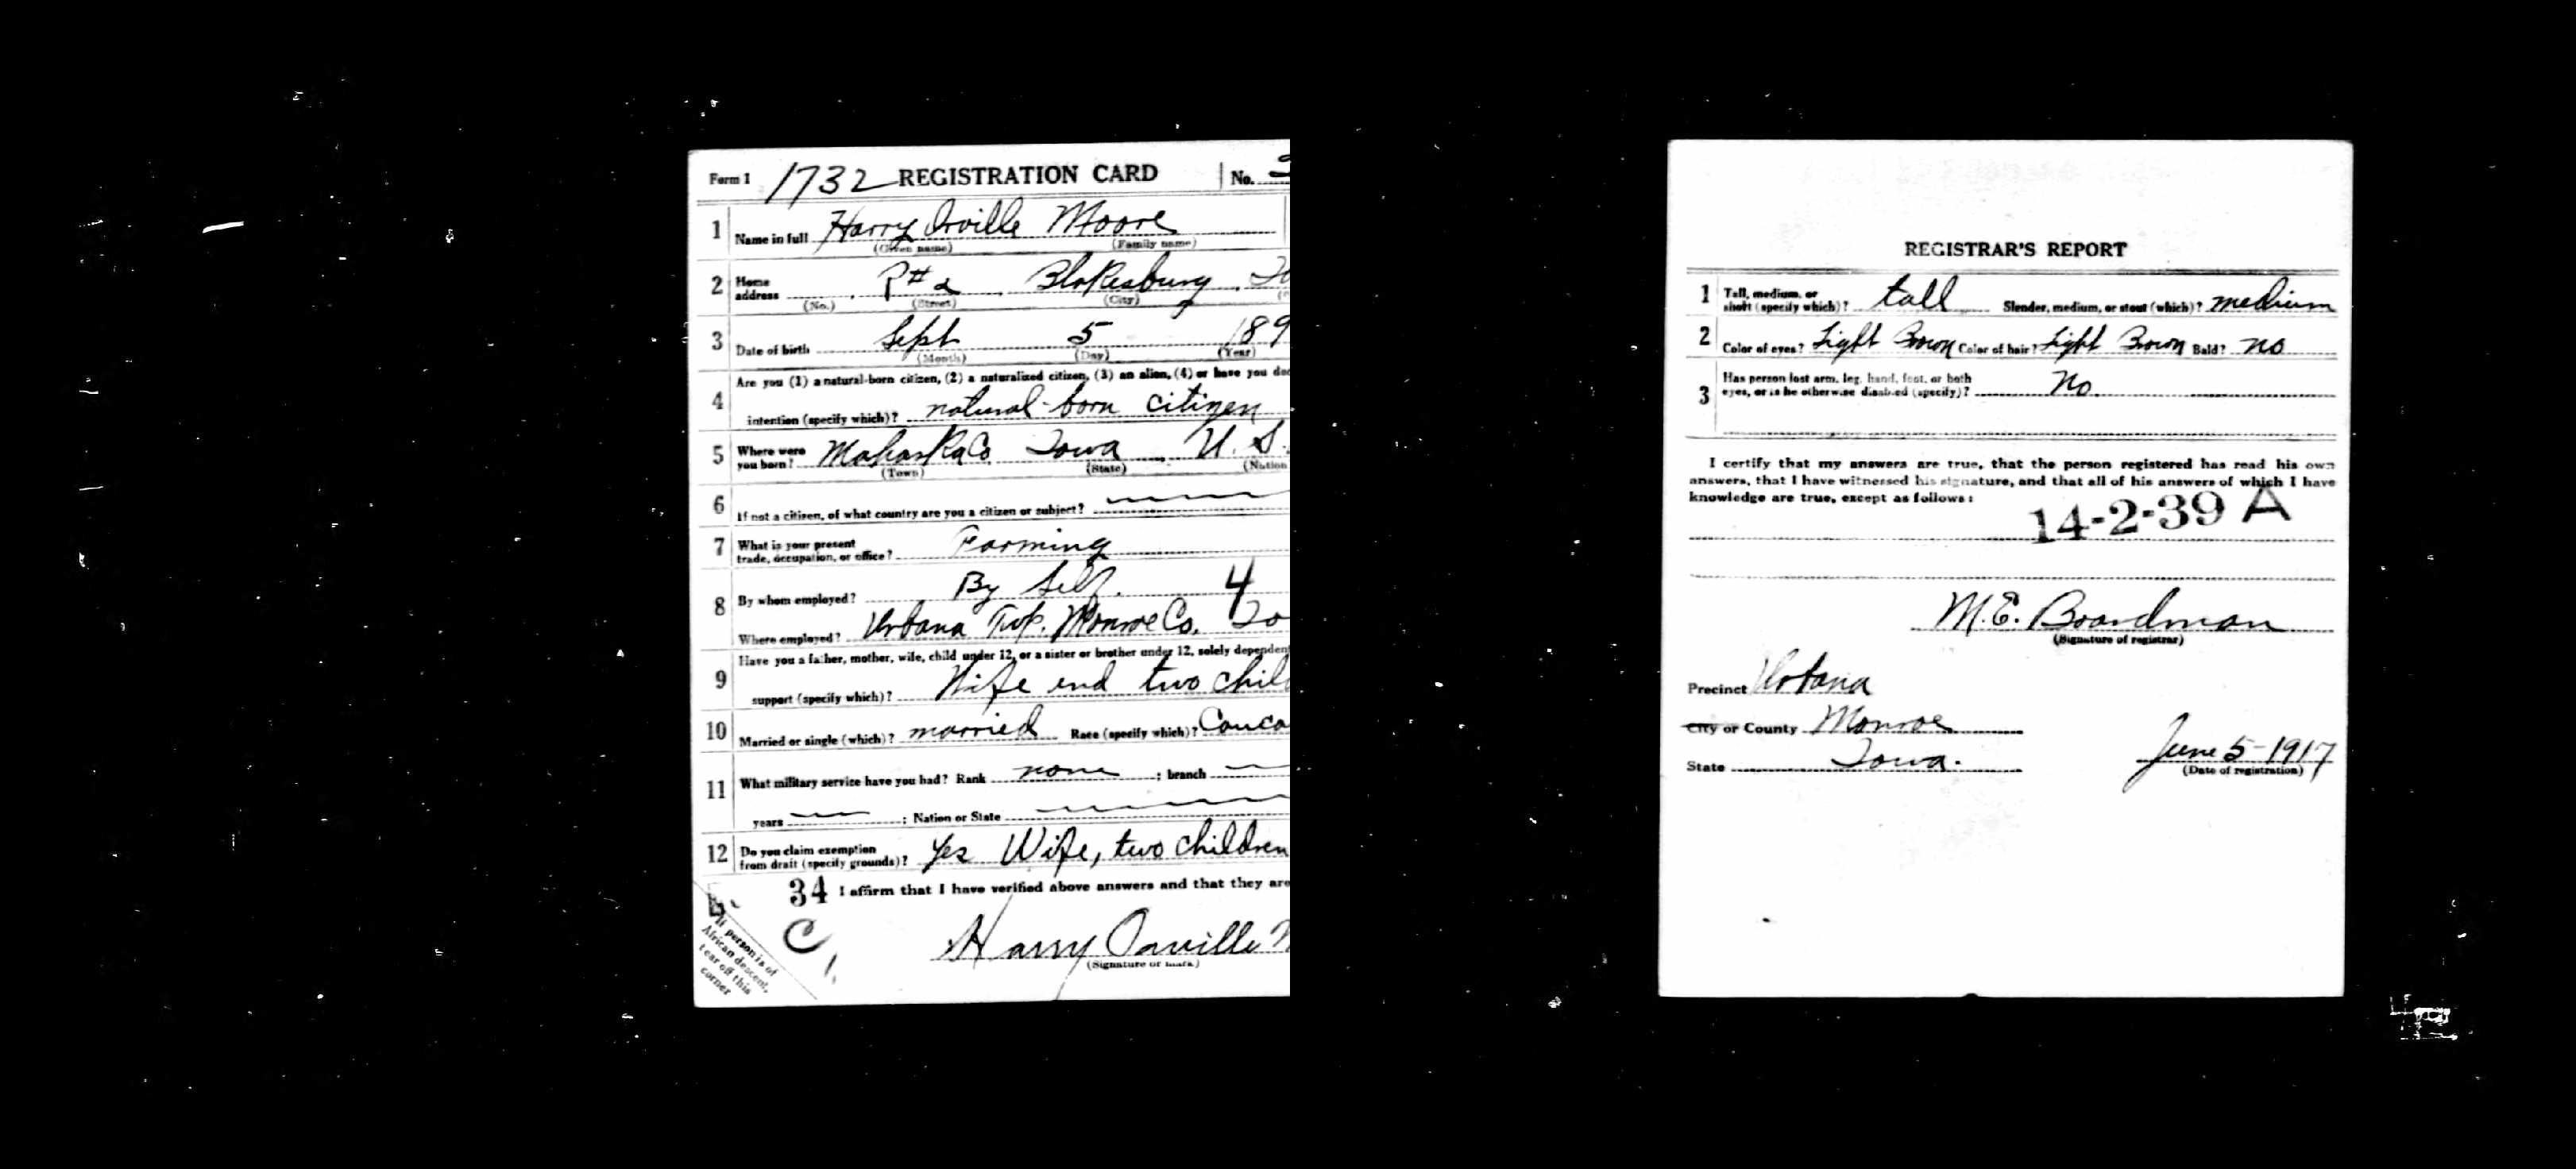 Form 1 1732 REGISTRATION CARD No.
1 Name in full Harry Orville Moore
(Given name) (Family name)
2 Home address R# 2 Blakesburg
(No.) (Street) (City)
3 Date of birth Sept 5 189
(Month) (Day) (Year)
Are you (1) a natural-born citizen, (2) a naturalized citizen, (3) an alien, (4) or have you
4 intention (specify which)? natural-born citizen
5 Where were you born? Mahaska Co Iowa U. S.
(Town) (State) (Nation
6 If not a citizen, of what country are you a citizen or subject?
7 What is your present trade, occupation, or office? Farming
8 By whom employed? By Self. 4
Where employed? Urbana Twp. Monroe Co. Io
Have you a father, mother, wife, child under 12, or a sister or brother under 12, solely dependent
9 support (specify which)? Wife end two chil
10 Married or single (which)? married Race (specify which)? Cauca
11 What military service have you had? Rank none ; branch
years ; Nation or State
12 Do you claim exemption from draft (specify grounds)? Yes Wife, two children
34 I affirm that I have verified above answers and that they are
C
Harry Orville M
(Signature or mark)
If person is of
African descent,
tear off this
corner
REGISTRAR'S REPORT
1 Tall, medium, or short (specify which)? tall Slender, medium, or stout (which)? medium
2 Color of eyes? Light Brown Color of hair? Light Brown Bald? no
3 Has person lost arm, leg, hand, foot, or both eyes, or is he otherwise disabled (specify)? No
I certify that my answers are true, that the person registered has read his own
answers, that I have witnessed his signature, and that all of his answers of which I have
knowledge are true, except as follows:
14-2-39 A
M.E. Boardman
(Signature of registrar)
Precinct Urbana
City or County Monroe
State Iowa.
June 5-1917
(Date of registration)